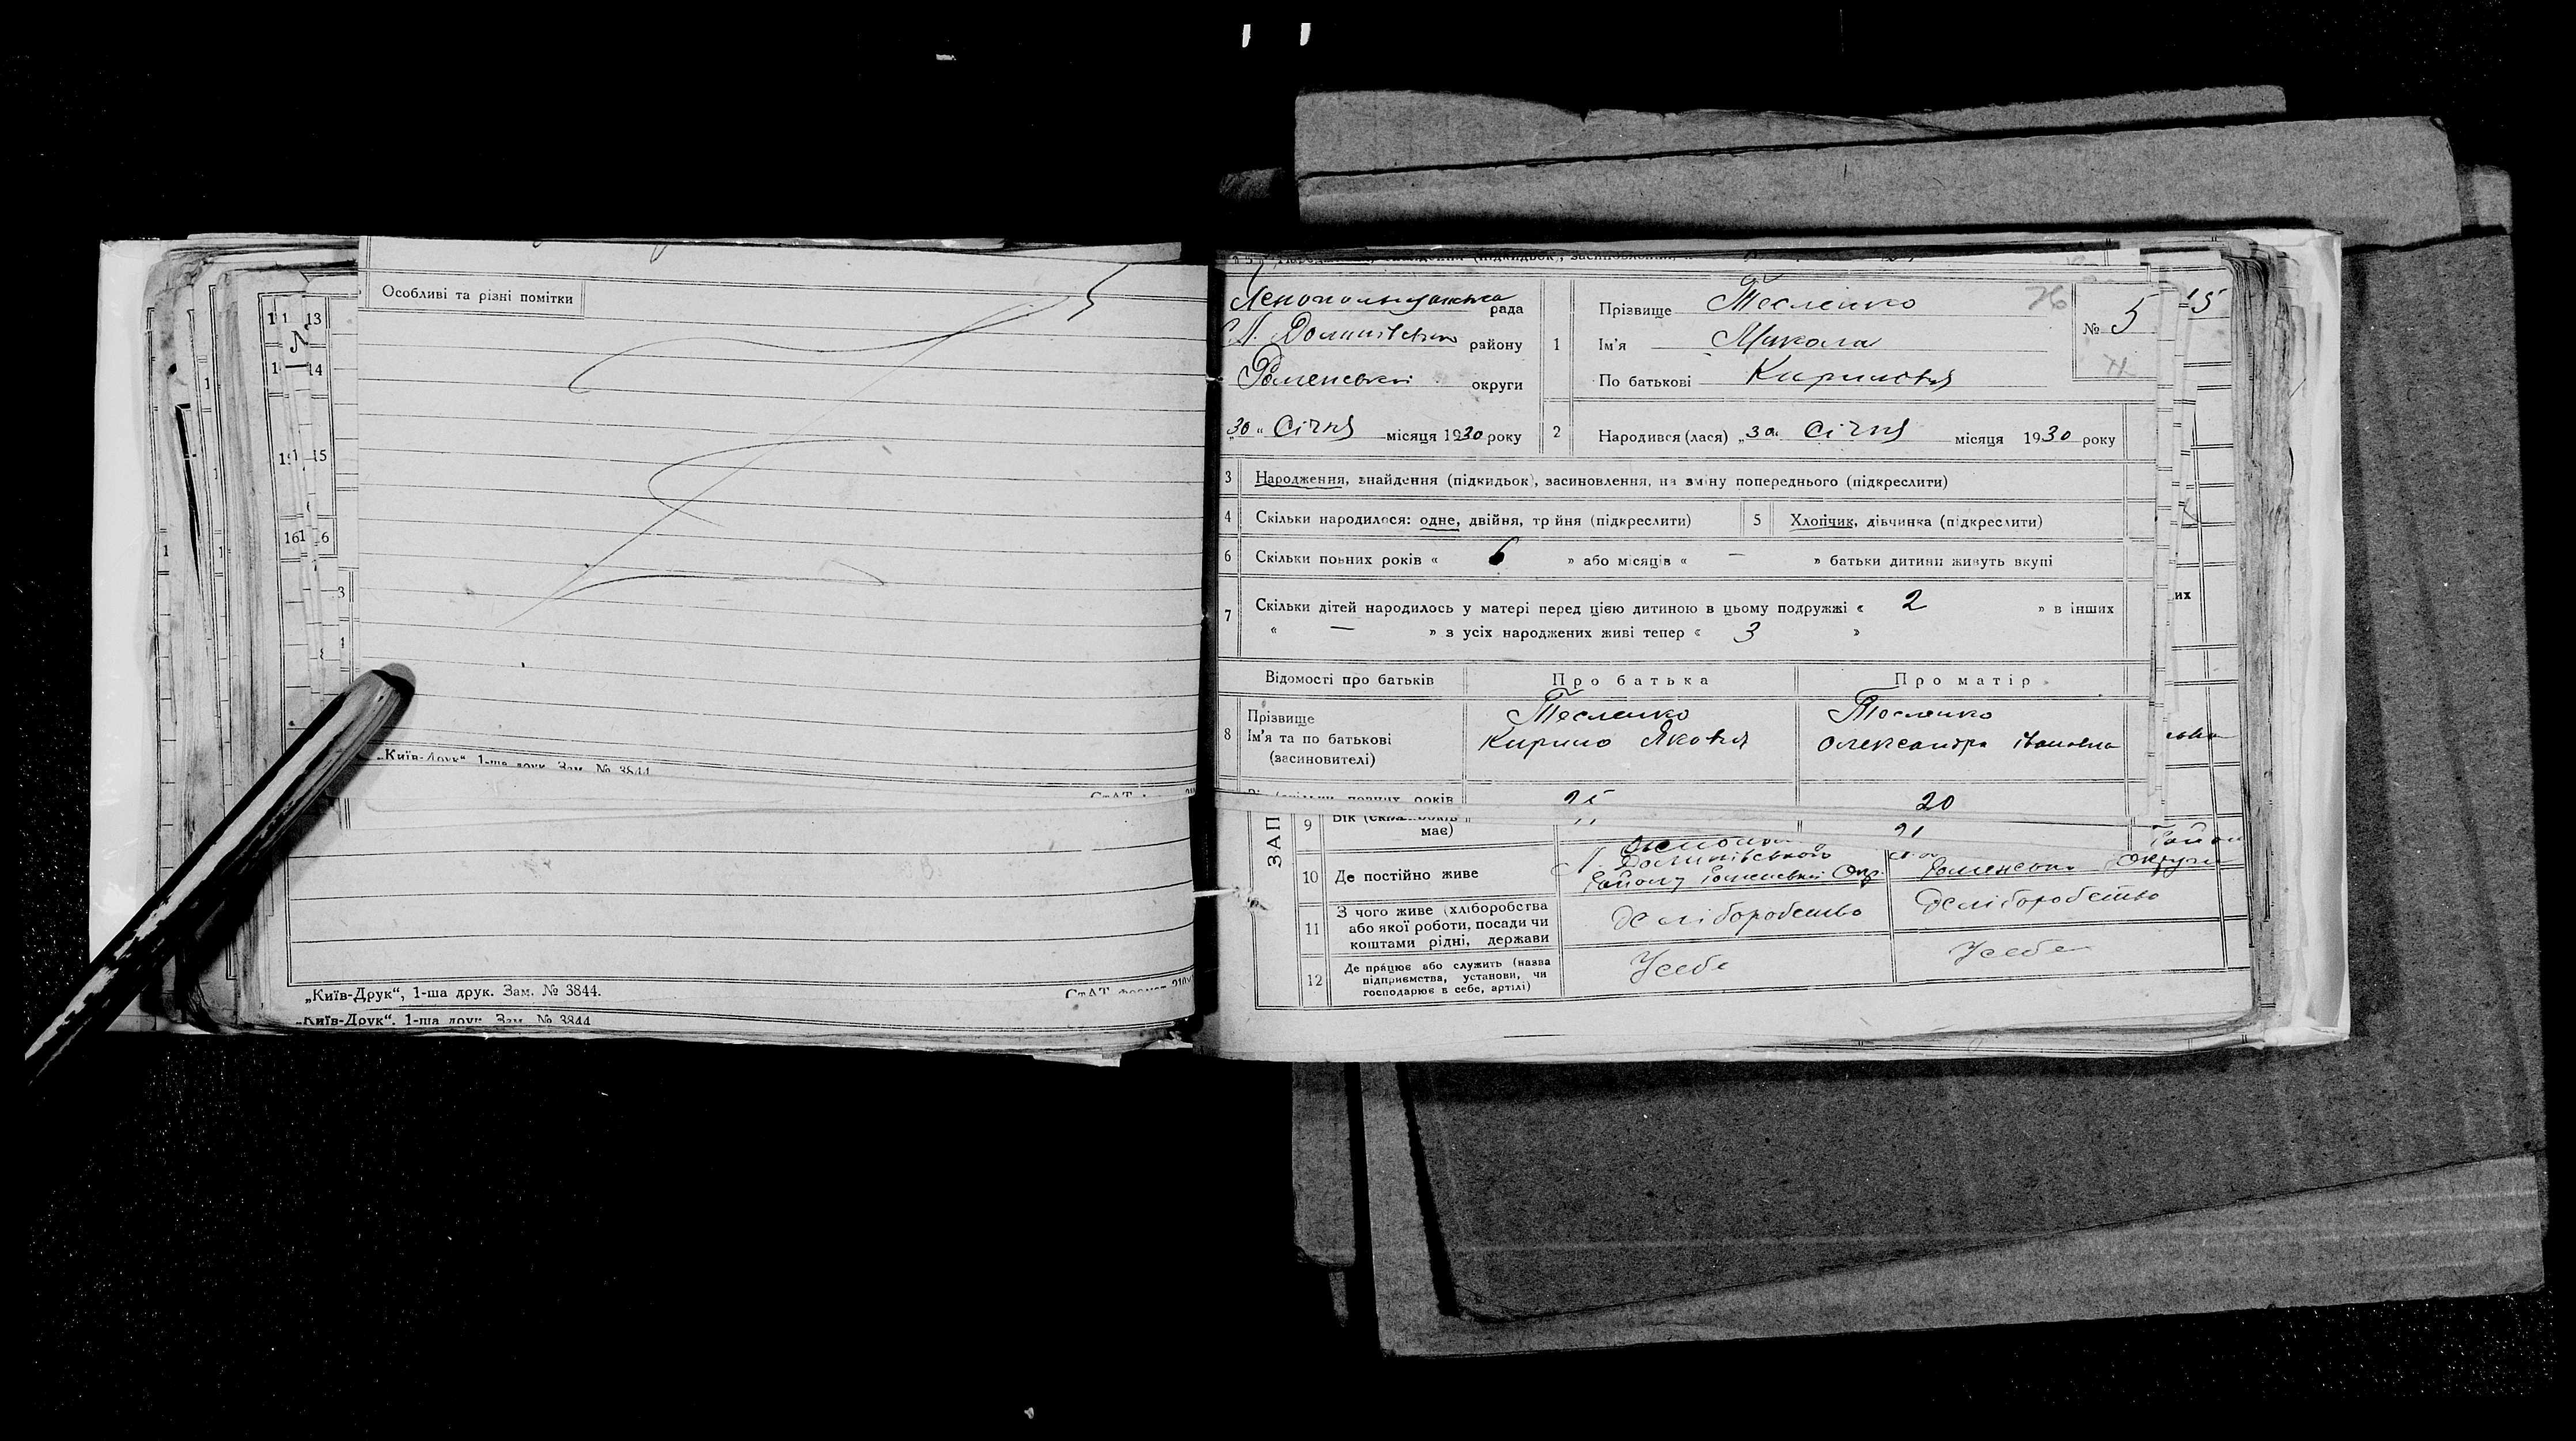 Особливі та різні помітки
5
„Київ-Друк“, 1-ша друк. Зам. № 3844
„Київ-Друк“, 1-ша друк. Зам. № 3844.
„Київ-Друк“. 1-ша друк. Зам. № 3844
рада
району
Роменської округи
„30“ Січня місяця 1930 року
1 Прізвище Тесленко
Ім'я Микола
По батькові Кирилович
№ 5
2 Народився (лася) „30“ Січня місяця 1930 року
3 Народження, знайдення (підкидьок), засиновлення, на зміну попереднього (підкреслити)
4 Скільки народилося: одне, двійня, тройня (підкреслити) 5 Хлопчик, дівчинка (підкреслити)
6 Скільки повних років « 6 » або місяців « — » батьки дитини живуть вкупі
7 Скільки дітей народилось у матері перед цією дитиною в цьому подружжі « 2 » в інших
« — » з усіх народжених живі тепер « 3 »
Відомості про батьків Про батька Про матір
8 Прізвище Тесленко Тесленко
Ім'я та по батькові Кирило Яковл Олександра Івановна
(засиновителі)
25 20
9 Вік
має) 21
ЗАП
10 Де постійно живе Роменської Окр. Роменська Округи
11 З чого живе (хліборобства
або якої роботи, посади чи
коштами рідні, держави
Хліборобство Хліборобство
12 Де працює або служить (назва
підприємства, установи, чи
господарює в себе, артілі)
У себе У себе